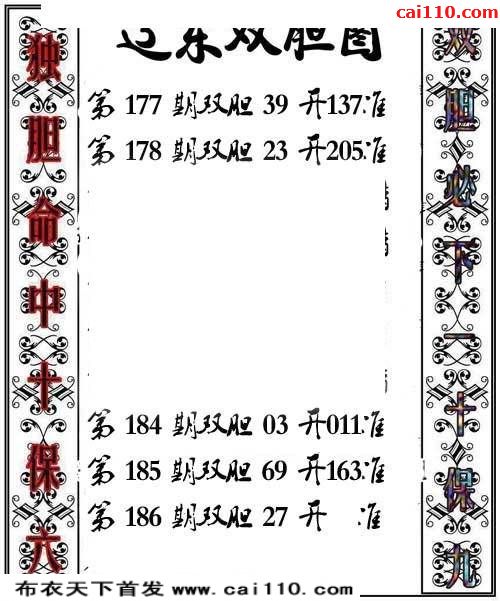 cai110.com
辽东双胆图
第 177 期双胆 39 开137准
第 178 期双胆 23 开205准
第 184 期双胆 03 开011准
第 185 期双胆 69 开163准
第 186 期双胆 27 开 准
独胆命中十保六
双胆必下一十保九
布衣天下首发 www.cai110.com